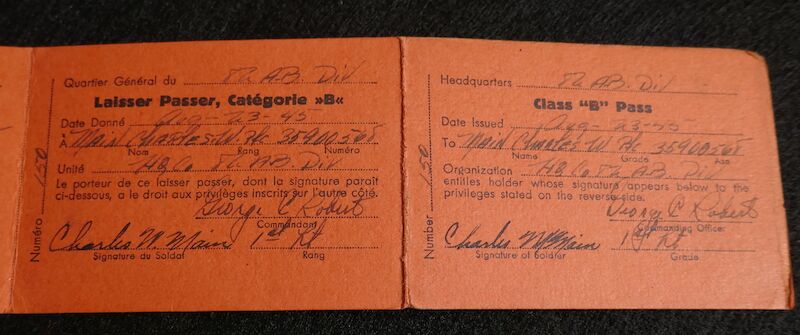 Quartier Général du 82 A.B. Div
Laisser Passer, Catégorie »B«
Date Donné Aug - 23 - 45
À Main Charles W. Pfc 35900568
Nom Rang Numéro
Unité Hq Co 82 A.B. Div
Le porteur de ce laisser passer, dont la signature paraît
ci-dessous, a le droit aux privilèges inscrits sur l'autre côté.
George C Robert
Commandant
Charles W. Main 1st Lt
Signature du Soldat Rang
Numéro 150
Headquarters 82 A.B. Div
Class "B" Pass
Date Issued Aug - 23 - 45
To Main Charles W Pfc 35900568
Name Grade Asn
Organization Hq Co 82 A.B. Div
entitles holder whose signature appears below to the
privileges stated on the reverse side.
George C Robert
Commanding Officer
Charles W Main 1st Lt
Signature of Soldier Grade
Number 150